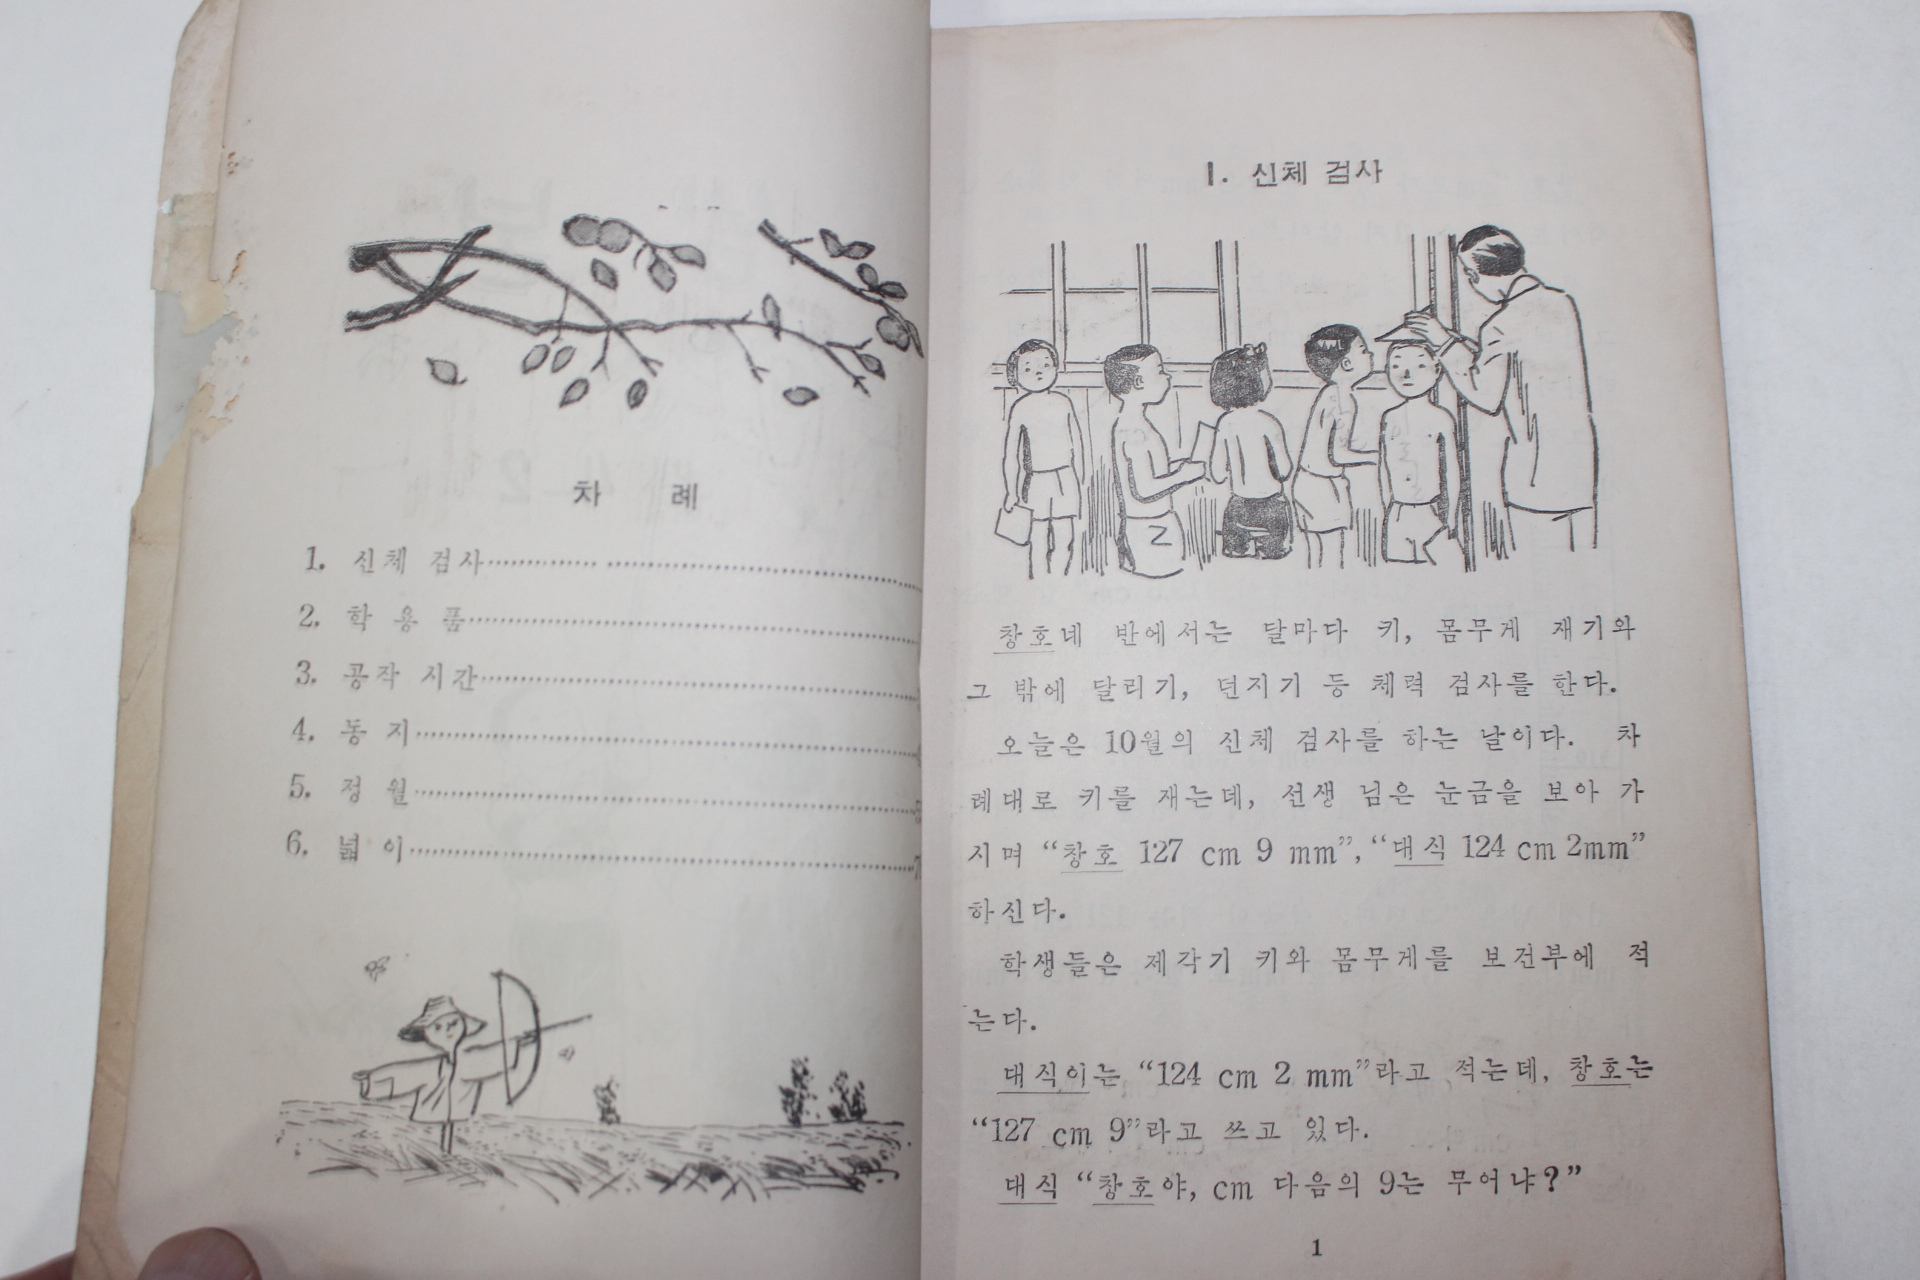 차 례
1. 신체 검사
2. 학 용 품
3. 공작 시간
4. 동 지
5. 정 월
6. 넓 이
1. 신체 검사
창호네 반에서는 달마다 키, 몸무게 재기와
그 밖에 달리기, 던지기 등 체력 검사를 한다.
오늘은 10월의 신체 검사를 하는 날이다. 차
례대로 키를 재는데, 선생 님은 눈금을 보아 가
시며 “창호 127 cm 9 mm”, “대식 124 cm 2mm”
하신다.
학생들은 제각기 키와 몸무게를 보건부에 적
는다.
대식이는 “124 cm 2 mm”라고 적는데, 창호는
“127 cm 9”라고 쓰고 있다.
대식 “창호야, cm 다음의 9는 무어냐?”
1